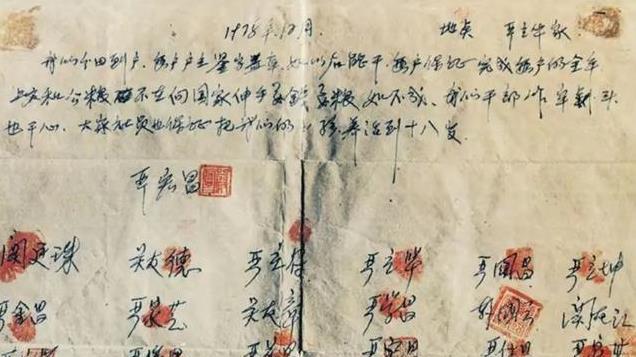 1978年12月. 地点 严立华家
我们分田到户,每户户主签字盖章,如以后能干,每户保证完成每户的全年
上交和公粮 不在向国家伸手要钱要粮,如不成,我们干部作牢刹头
也干心,大家社员也保证把我们的小孩养活到十八岁.
严宏昌
关廷珠 关友德 严立符 严立华 严国昌 严立坤
严金昌 严家芝 关友章 严学昌 韩国云 关友江